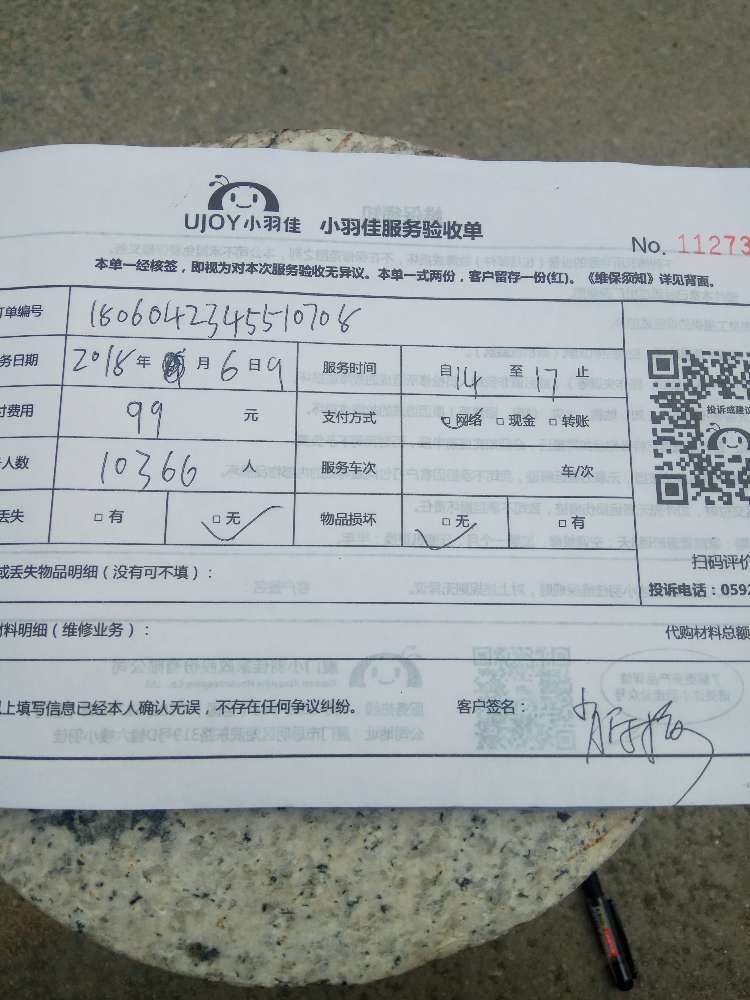 UJOY小羽佳 小羽佳服务验收单
No. 11273
本单一经核签，即视为对本次服务验收无异议。本单一式两份，客户留存一份(红)。《维保须知》详见背面。
订单编号 1806042345510708
务日期 2018年 月6日9 服务时间 自14至17止
付费用 99 元 支付方式 □网络 □现金 □转账
人数 10366 人 服务车次 车/次
丢失 □有 □无 物品损坏 □无 □有
投诉或建议
扫码评价
或丢失物品明细（没有可不填）：
投诉电话：0592
材料明细（维修业务）：
代购材料总额
以上填写信息已经本人确认无误，不存在任何争议纠纷。 客户签名：